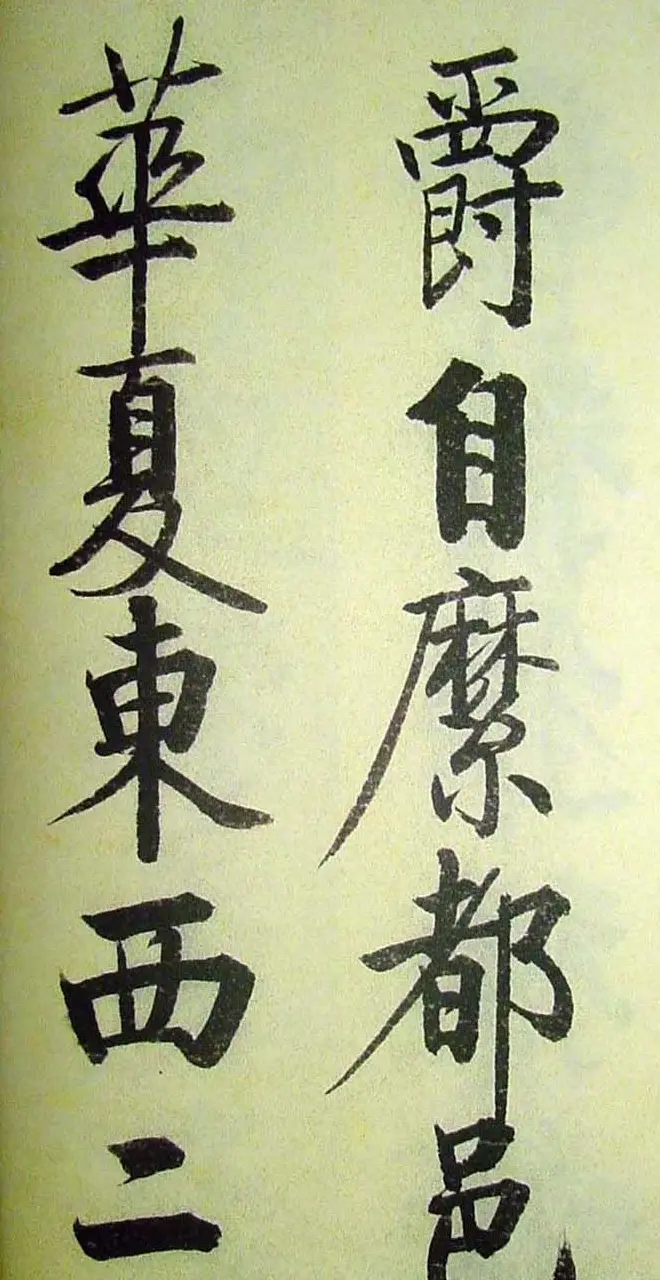 爵自縻都邑
華夏東西二